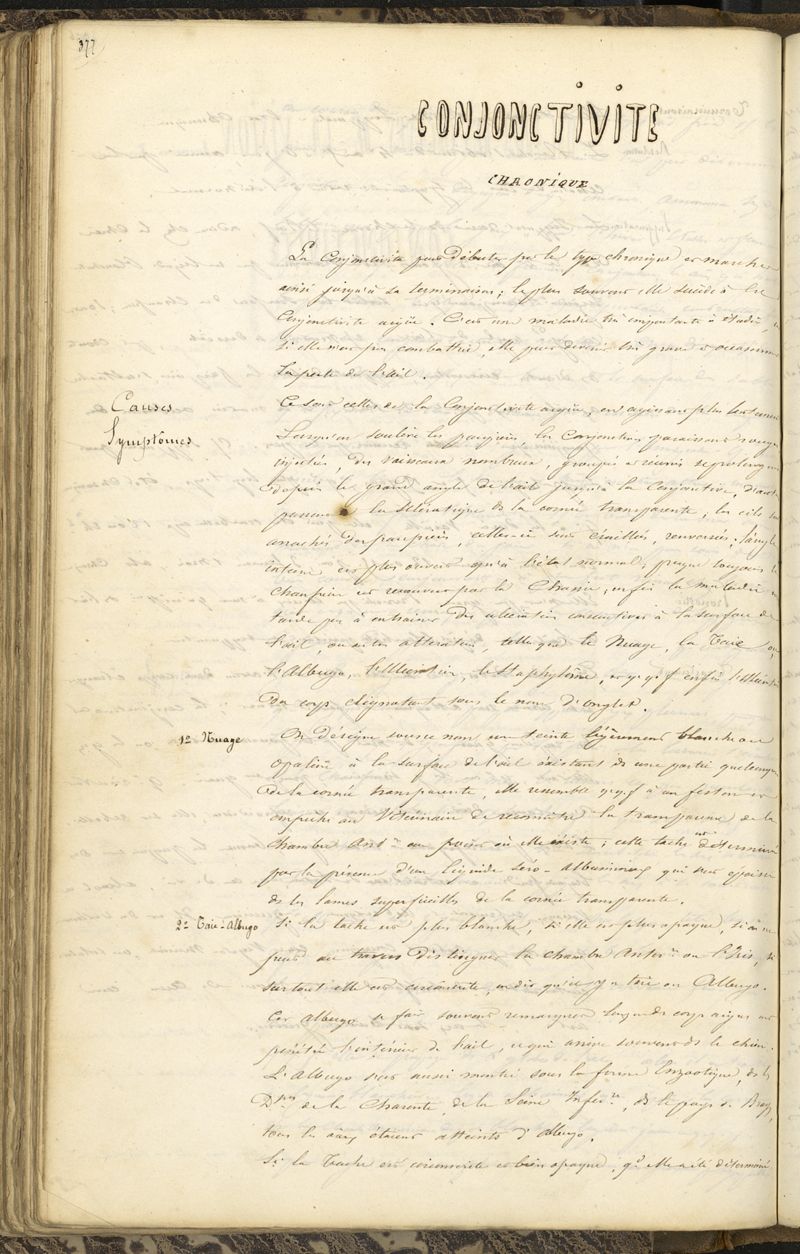 377
CONJONCTIVITE
CHRONIQUE
La Conjonctivite peut débuter par le type chronique et marcher
ainsi jusqu'à sa terminaison; le plus souvent elle succède à la
Conjonctivite aigüe. C'est une maladie très importante à étudier,
si elle n'est pas combattue, elle peut devenir très grave et occasionner
la perte de l'œil.
Causes
Ce sont celles de la Conjonctivite aigüe, en agissant plus lentement
Symptômes
Lorsqu'on soulève les paupières, les Conjonctives paraissent rouges
injectées, des vaisseaux nombreux, groupés et réunis se prolongent
depuis le grand angle de l'œil jusqu'à la Conjonctive, d'autres
passent la sclérotique de la cornée transparente, les cils sont
arrachés des paupières, celles-ci sont éraillées, renversées, l'angle
interne est plus ouvert qu'à l'état normal, presque toujours le
chanfrein est recouvert par la Chassie, enfin la maladie ne
tarde pas à entraîner des ulcérations consécutives à la surface de
l'œil, ou autres altérations, telles que le Nuage, la Taie ou
l'Albugo, l'Ulcération, le Staphylôme, et q.q.f enfin l'
du corps clignotant sous le nom d'onglet.
1º Nuage
On désigne sous ce nom une teinte légèrement blanche ou
opaline à la surface de l'œil existant ds une partie quelconque
de la cornée transparente, elle ressemble q.q.f à un feston et
empêche au Vétérinaire de reconnaître la transparence de la
Chambre Antre au point où elle existe; cette tache est déterminée
par la présence d'un liquide séro-albumineux qui s'est épaissi
ds les lames superficielles de la cornée transparente.
2º Taie-Albugo
Si la tache est plus blanche, si elle est plus opaque, si on ne
peut au travers distinguer la chambre Antérre ou l'Iris, si
surtout elle est circonscrite, on dit qu'il y a taie ou Albugo.
Cet albugo se fait souvent remarquer lorsque ds corps aigus ont
pénétré l'intérieur de l'œil, ce qui arrive souvent ds le chien.
L'Albugo s'est aussi montré sous la forme Enzootique, ds les
Dpts de la Charente, de la Seine Inférre, ds le pays de Bray,
tous les étaient atteints d'albugo.
Si la Tache est circonscrite et bien opaque, qd elle a été déterminée